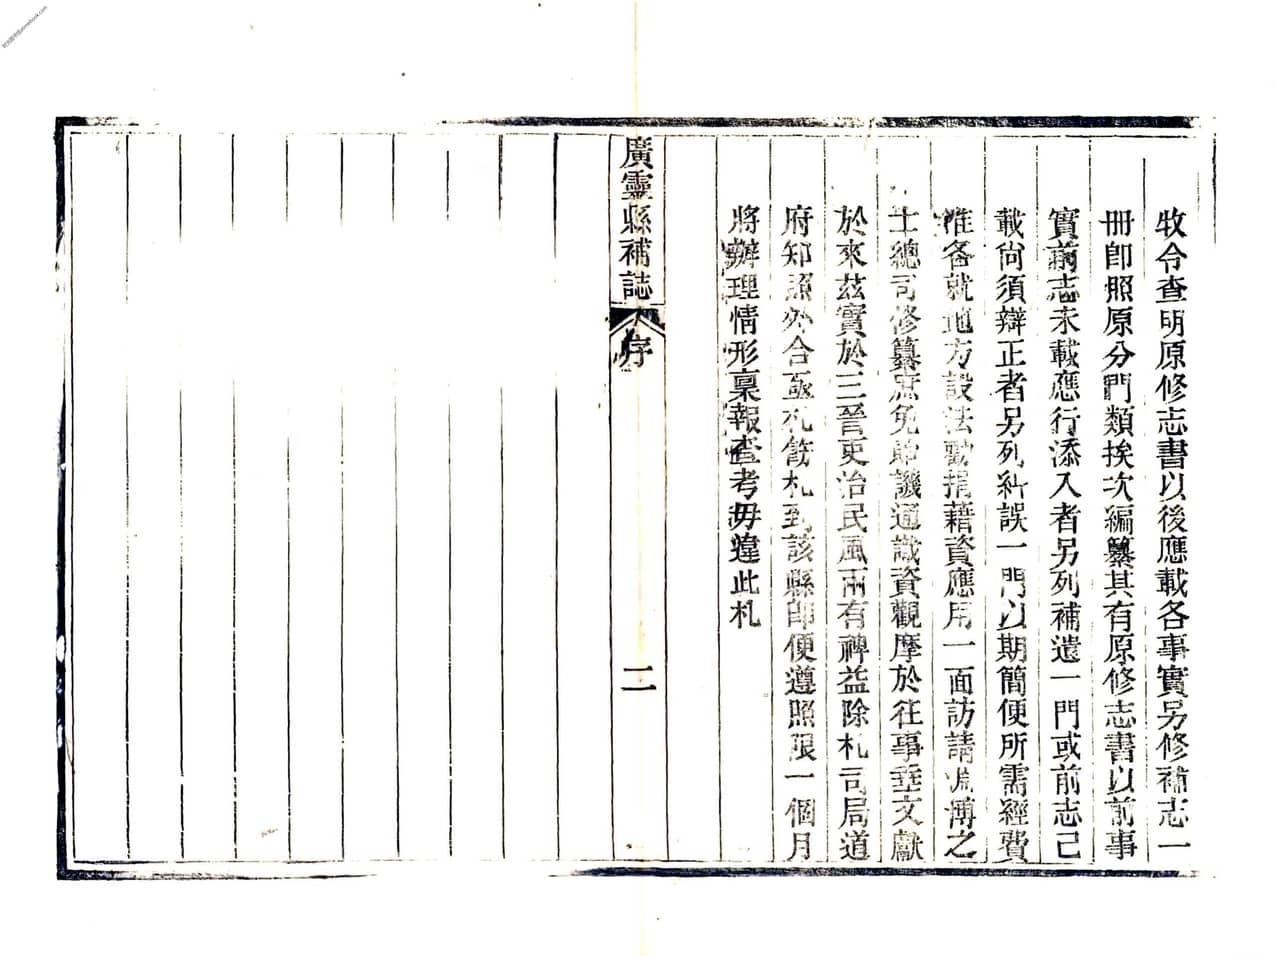 牧令查明原修志書以後應載各事實另修補志一
冊卽照原分門類挨次編纂其有原修志書以前事
實前志未載應行添入者另列補遺一門或前志已
載尙須辯正者另列糾誤一門以期簡便所需經費
准各就地方設法勸捐藉資應用一面訪請淹博之
士總司修纂庶免弇譏通識資觀摩於往事垂文獻
於來茲實於三晉吏治民風兩有裨益除札司局道
府知照外合亟札飭札到該縣卽便遵照限一個月
將辦理情形稟報查考毋違此札
廣靈縣補誌 序 二